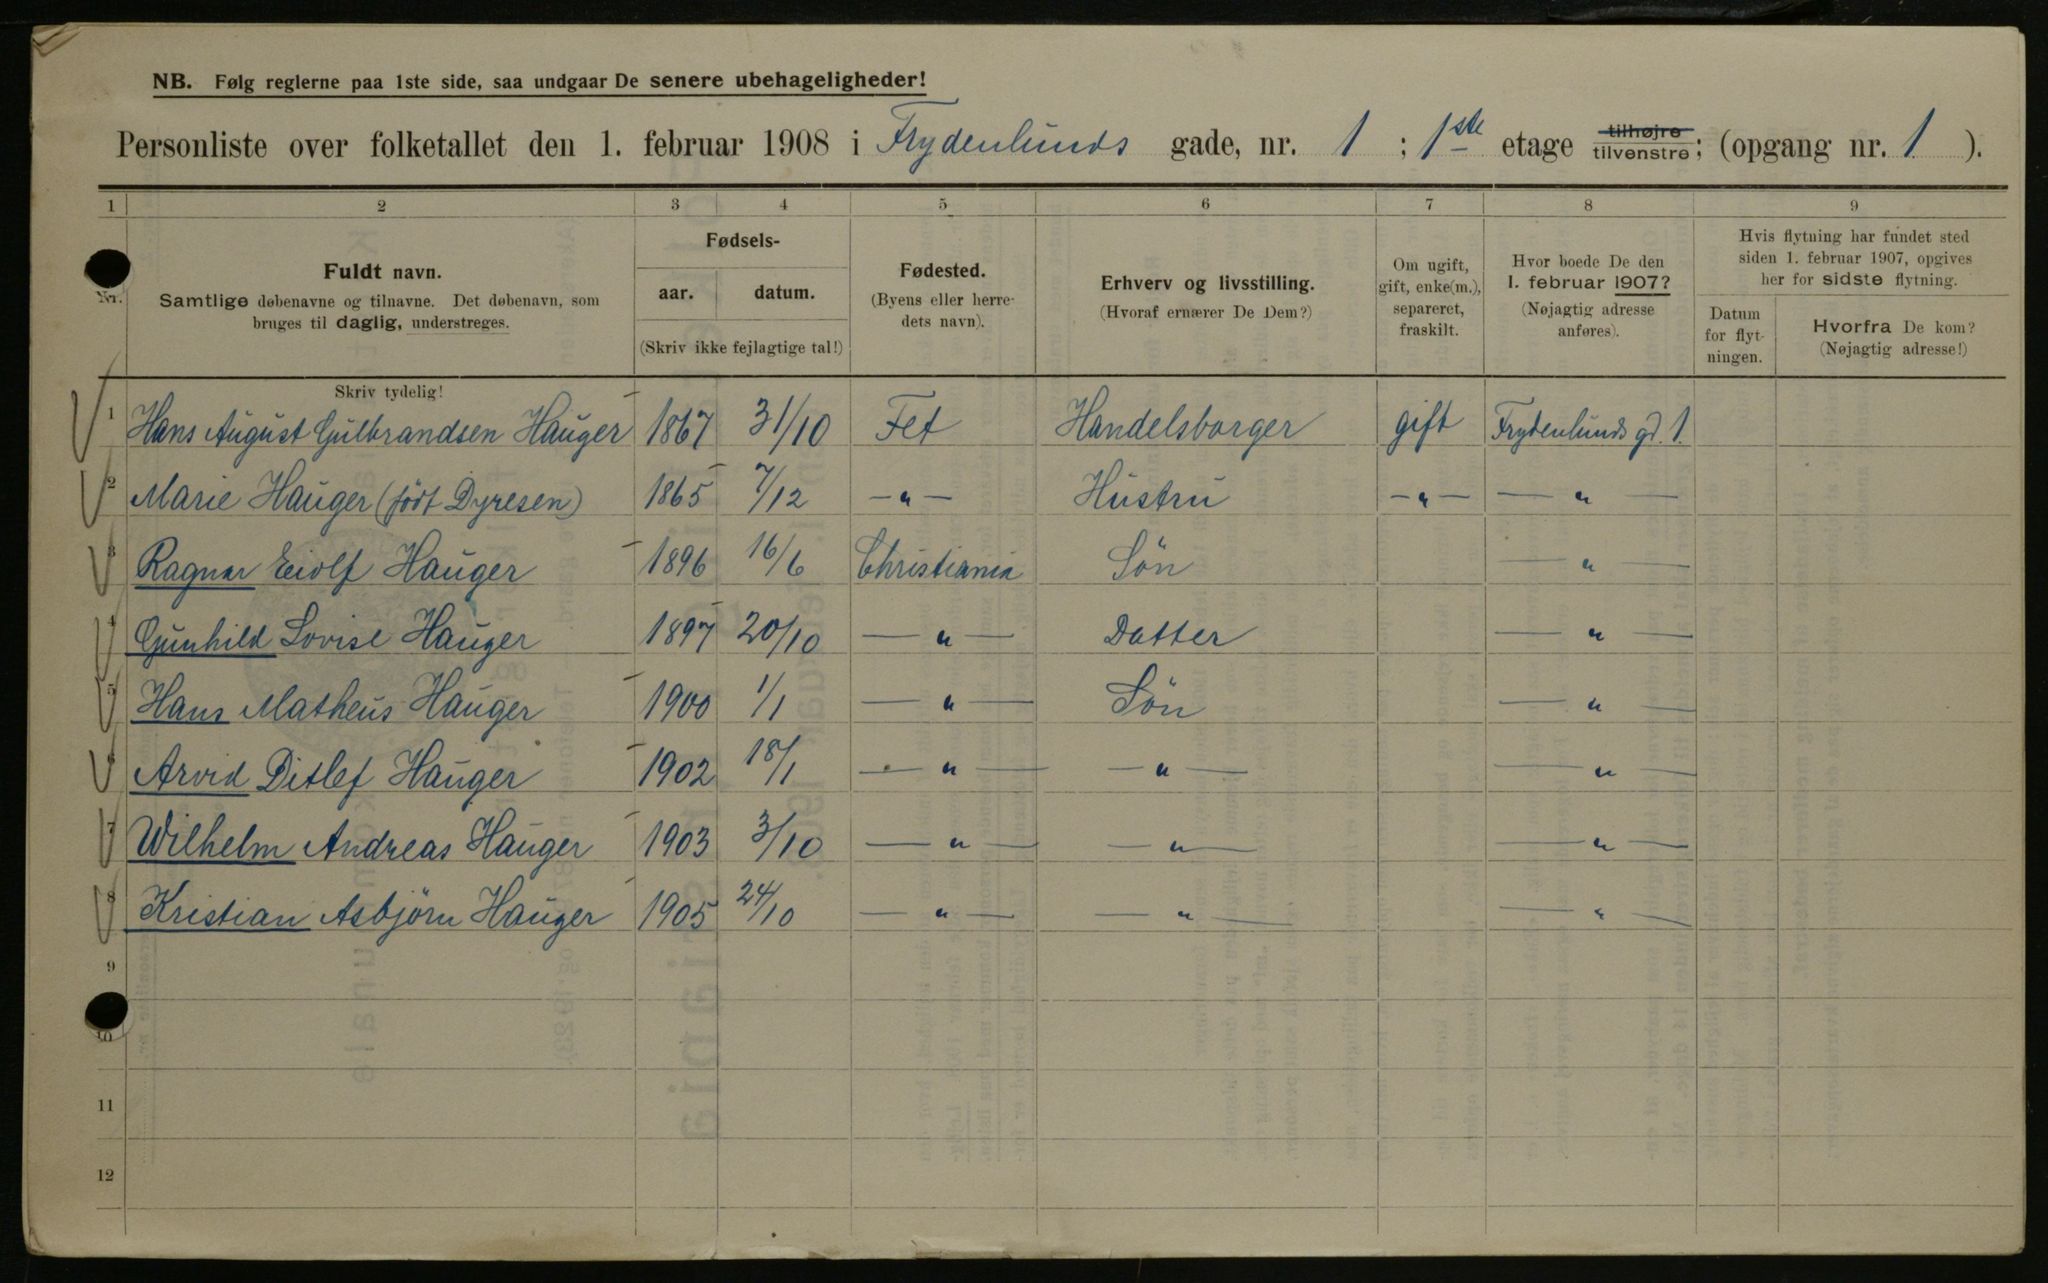 NB. Følg reglerne paa 1ste side, saa undgaar De senere ubehageligheder!
Personliste over folketallet den 1. februar 1908 i Frydenlunds gade, nr. 1 ; 1ste etage tilhøjre tilvenstre; (opgang nr. 1 ).
1 2 3 4 5 6 7 8 9
Nr.
Fuldt navn.
Samtlige døbenavne og tilnavne. Det døbenavn, som
bruges til daglig, understreges.
Skriv tydelig!
Fødsels-
aar. datum.
(Skriv ikke fejlagtige tal!)
Fødested.
(Byens eller herre-
dets navn).
Erhverv og livsstilling.
(Hvoraf ernærer De Dem?)
Om ugift,
gift, enke(m.),
separeret,
fraskilt.
Hvor boede De den
1. februar 1907?
(Nøjagtig adresse
anføres).
Hvis flytning har fundet sted
siden 1. februar 1907, opgives
her for sidste flytning.
Datum
for flyt-
ningen.
Hvorfra De kom?
(Nøjagtig adresse!)
1 Hans August Gulbrandsen Hauger 1867 31/10 Fet Handelsborger gift Frydenlunds gd. 1.
2 Marie Hauger (född Dyresen) 1865 7/12 — " — Hustru — " — — " —
3 Ragnar Eiolf Hauger 1896 16/6 Christiania Sön — " —
4 Gunhild Lovise Hauger 1897 20/10 — " — Datter — " —
5 Hans Matheus Hauger 1900 1/1 — " — Sön — " —
6 Arvid Ditlef Hauger 1902 18/1 — " — — " — — " —
7 Wilhelm Andreas Hauger 1903 3/10 — " — — " — — " —
8 Kristian Asbjörn Hauger 1905 24/10 — " — — " — — " —
9
10
11
12